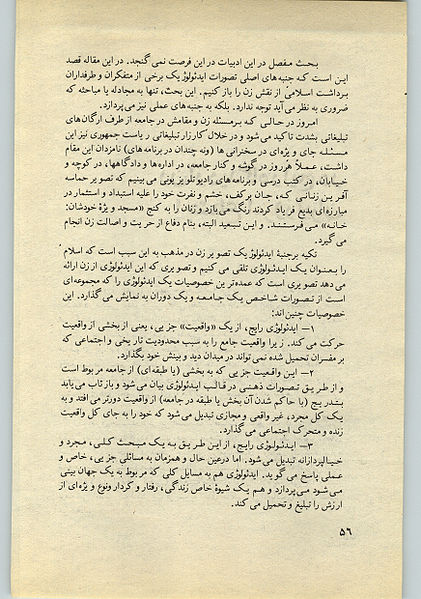 بـحـث مـفصل در این ادبیات در این فرصت نمی گنجد. در این مقاله قصد
این است کـه جنبه‌های اصلی تصورات ایدئولوژیک برخی از متفکران و طرفداران
برداشت اسـلامی از نقش زن را باز کنیم. این بحث، تنها به مجادله یا مباحثه که
ضروری به نظر می آید توجه ندارد. بلکه به جنبه‌های عملی نیز می پردازد.
امـروز در حـالـی کـه بـرمسئله زن و مقامش در جامعه از طرف ارگان‌های
تبلیغاتی بشدت تاکید می شود و در خلال کارزار تبلیغاتی ریاست جمهوری نیز این
مسئـله جای و یژه‌ای در سخنرانی ها (ونه چندان در برنامه‌های) نامزدان این مقام
داشت، عمـلاً هرروز در گوشه و کنار جامعه، در اداره‌ها و دادگاهها، در کوچه و
خیـابان، در کتب درسی و برنامه‌های رادیو تلویزیونی می بینیم که تصویر حماسه
آفـریـن زنـانـی کـه، جـان برکف، خشم و نفرت خود را علیه استبداد و استثمار در
مبارزه‌ای بدیع فریاد کردند رنگ می بازد و زنان را به کنج «مسجد و یژه خودشان:
خـانـه» مـی فـرستـنـد. و ایـن تبعید البته، بنام دفاع از حریت و اصالت زن انجام
می گیرد.
تکیه برجنبهٔ ایدئولوژیک تصویر زن در مذهب به این سبب است که اسلام
را بـعنـوان یـک ایدئـولـوژی تلقی می کنیم و تصویری که این ایدئولوژی از زن ارائه
می دهد تصویری است که عمده‌ترین خصوصیات یک ایدئولوژی را که مجموعه‌ای
است از تـصـورات شـاخـص یـک جـامـعـه و یک دوران به نمایش می گذارد. این
خصوصیات چنین اند:
۱ـ ایدئولوژی رایج، از یک «واقعیت» جزیی، یعنی از بخشی از واقعیت
حرکت می کند. زیرا واقعیت جامع را به سبب محدودیت تاریخی و اجتماعی که
بر مفسران تحمیل شده نمی تواند در میدان دید و بینش خود بگذارد.
۲ـ ایـن واقـعیت جزیی که به بخشی (یا طبقه‌ای) از جامعه مربوط است
و از طـریـق تـصورات ذهـنـی در قـالب ایـدئولوژی بیان می شود و بازتاب می یابد
بـتـدریـج (با حاکم شدن آن بخش یا طبقه در جامعه) از واقعیت دورتر می افتد و به
یـک کل مجرد، غیر واقعی و مجازی تبدیل می شود که خود را به جای کل واقعیت
زنده و متحرک اجتماعی می گذارد.
۳ـ ایـدئـولـوژی رایـج، از ایـن طـریـق بـه یـک مبـحـث کـلـی، مـجرد و
خیـالپردازانه تبدیل می شود. اما درعین حال و همزمان به مسائلی جزیی، خاص و
عـمـلی پاسخ می گوید. ایدئولوژی هم به مسایل کلی که مربوط به یک جهان بینی
مـی شـود مـی پـردازد و هـم یـک شیوهٔ خاص زندگی، رفتار و کردار ونوع و یژه‌ای از
ارزش را تبلیغ و تحمیل می کند.
۵٦